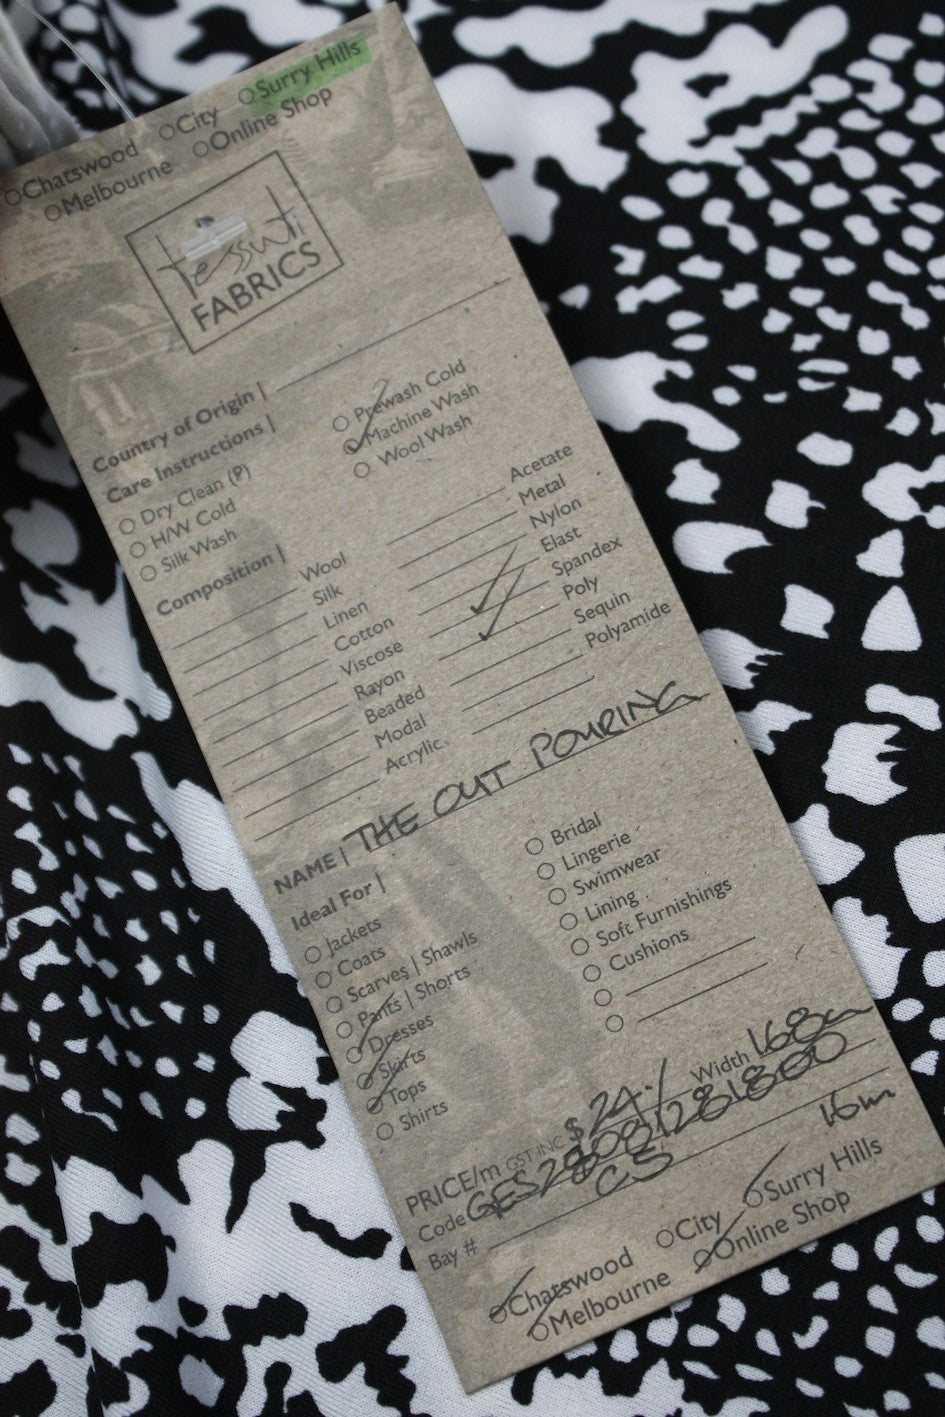 Chatswood City Surry Hills
Melbourne Online Shop
tessuti
FABRICS
Country of Origin |
Care Instructions |
Dry Clean (P)
H/W Cold
Silk Wash
Prewash Cold
Machine Wash
Wool Wash
Composition |
Wool
Silk
Linen
Cotton
Viscose
Rayon
Beaded
Modal
Acrylic
Acetate
Metal
Nylon
Elast
Spandex
Poly
Sequin
Polyamide
NAME | THE OUT POURING
Ideal For |
Jackets
Coats
Scarves | Shawls
Pants | Shorts
Dresses
Skirts
Tops
Shirts
Bridal
Lingerie
Swimwear
Lining
Soft Furnishings
Cushions
PRICE/m GST-INC $ 24 Width 168cm
Code
Bay # C5 16m
Chatswood City Surry Hills
Melbourne Online Shop